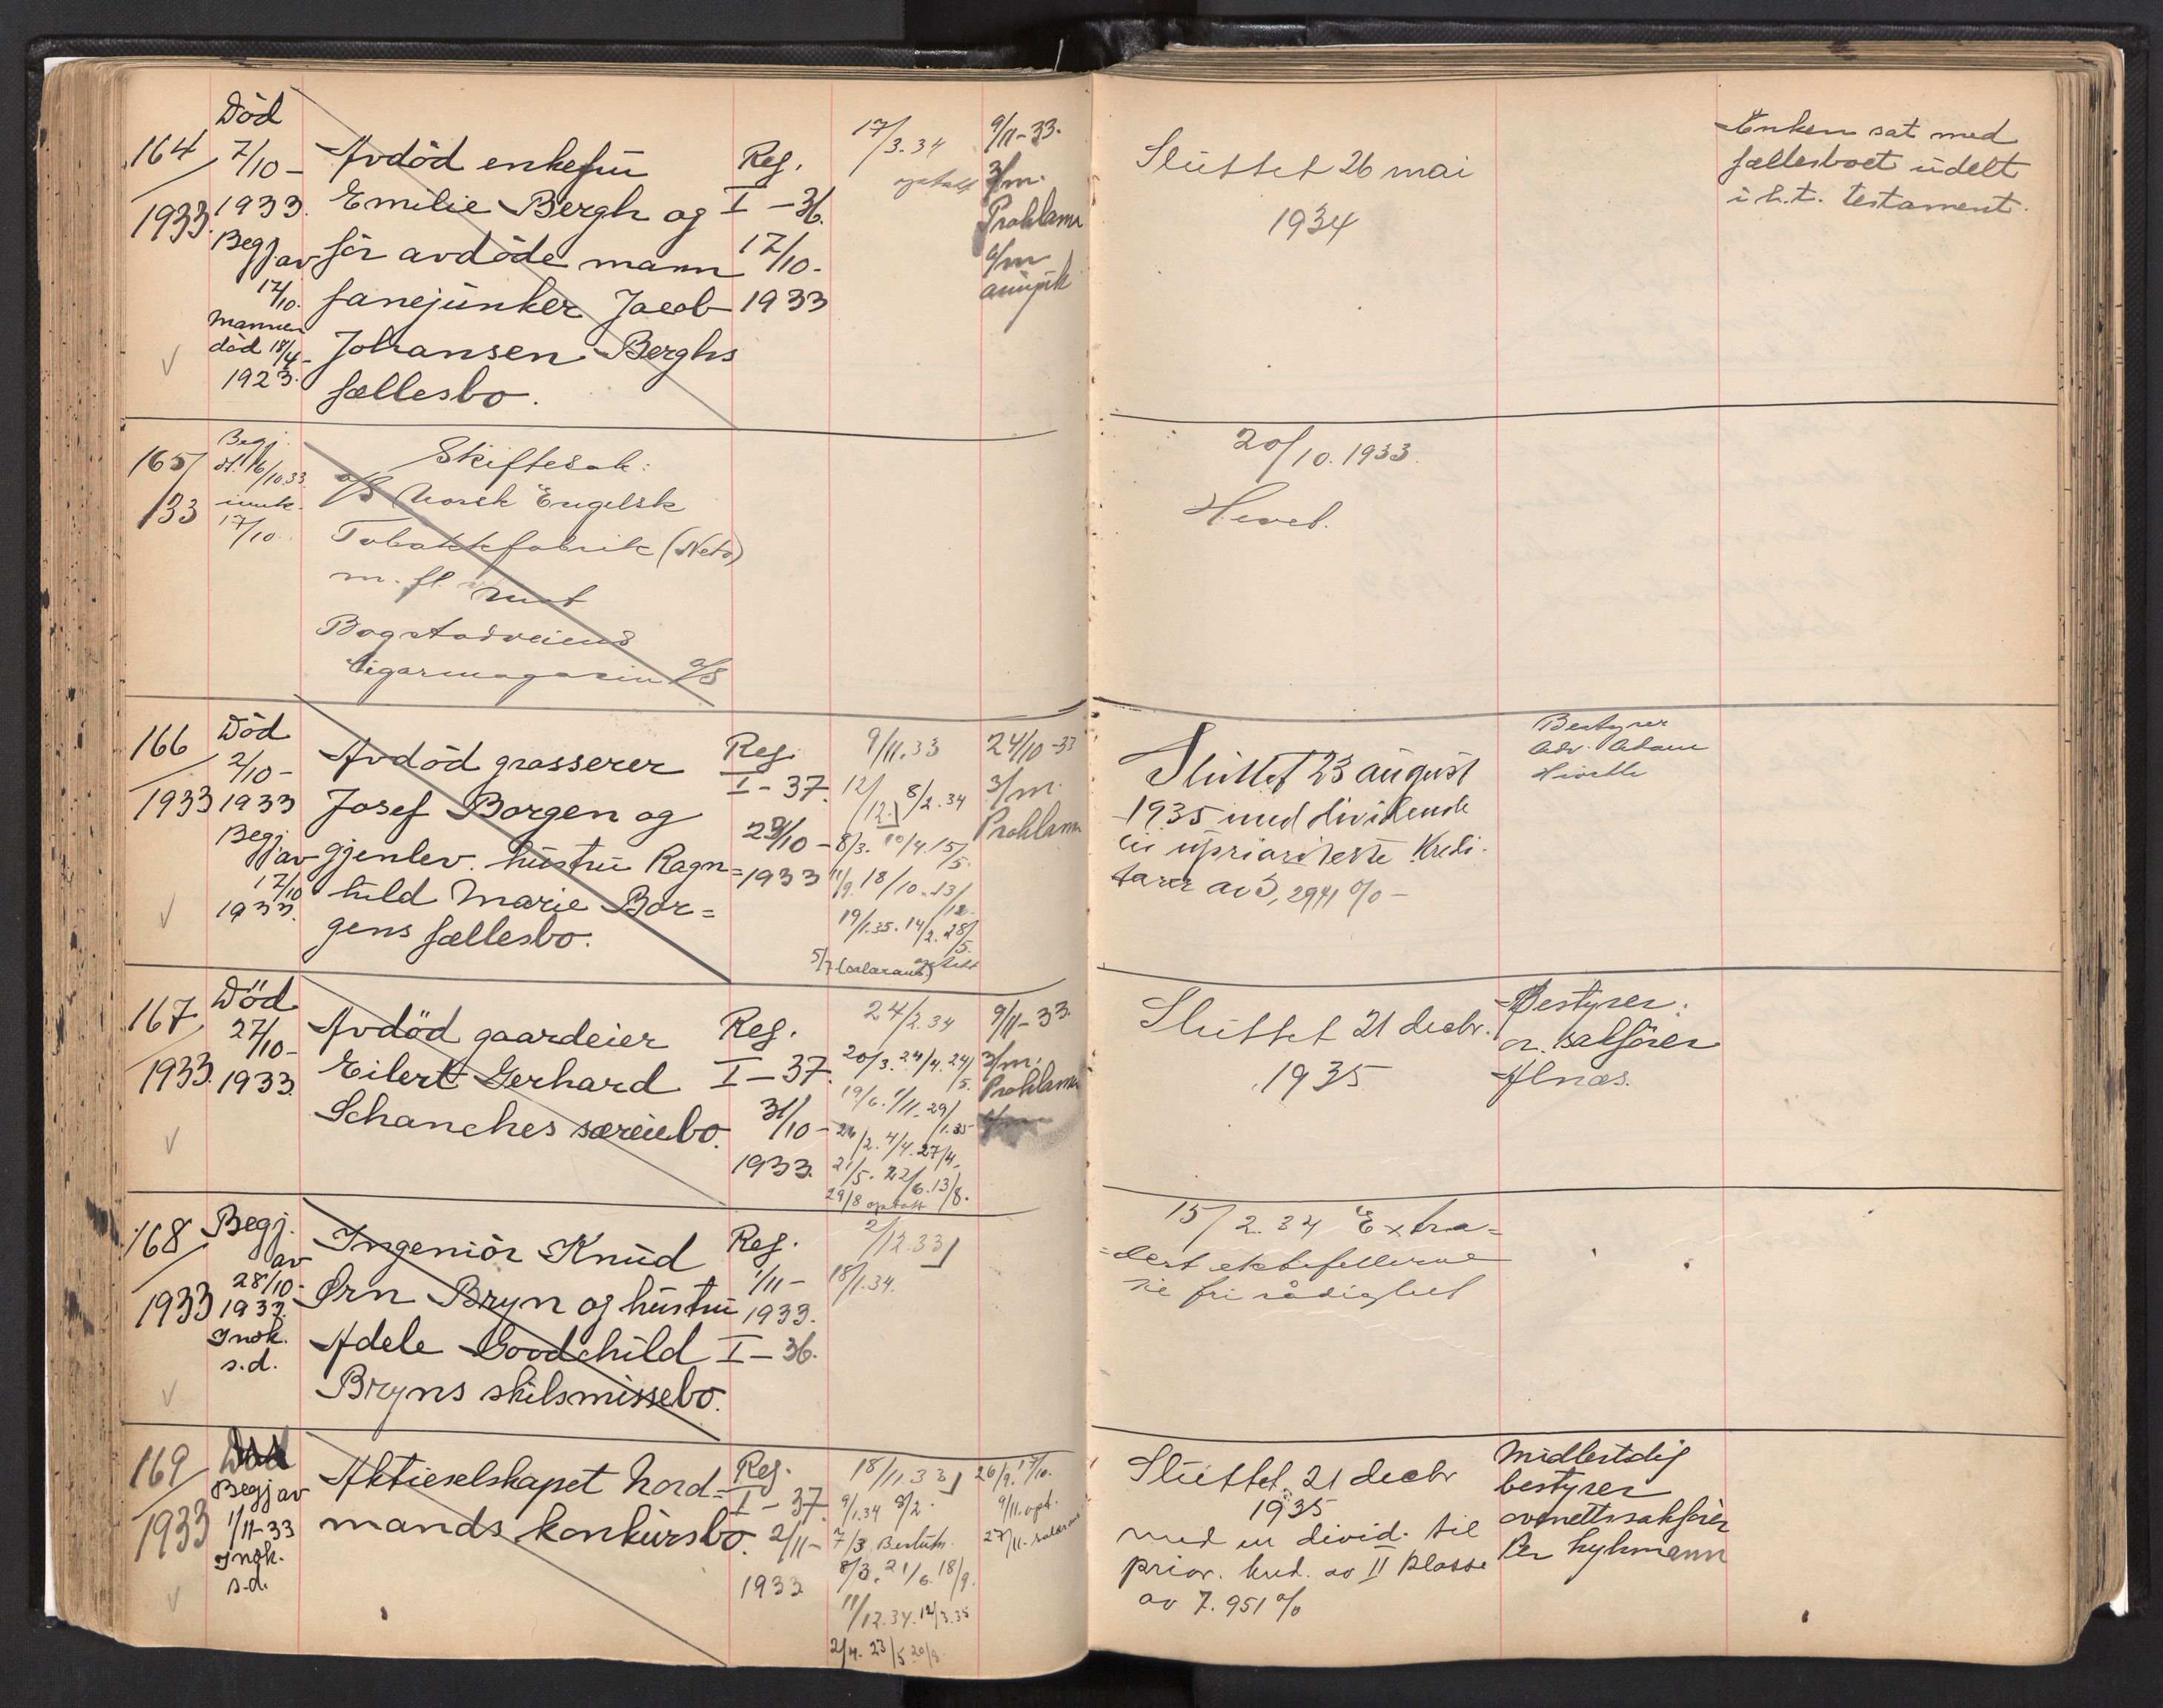 164
1933.
Död
7/10 -
1933.
Begj. av
17/10.
Mannen
död 18/4 -
1923.
Avdöd enkefru
Emilie Bergh og
før avdöde mann
fanejunker Jacob
Johansen Berghs
fællesbo.
Reg.
I - 36.
17/10 -
1933
17/3.34
optatt
9/11 - 33.
3/m.
Proklama
6/m
Sluttet 26 mai
1934
Enken sat med
fællesboet udelt
i h.t. testament.
165/
/33
Begj.
dt. 16/10.33
innk.
17/10.
Skiftesak:
a/s Norsk Engelsk
Tobakkfabrik (Neto)
m. fl. mot
Bogstadveiens
Cigarmagasin a/s
20/10.1933.
Hevet.
166
1933
Död
2/10 -
1933
Begj. av
17/10
1933.
Avdöd grosserer
Josef Borgen og
gjenlev. hustru Ragn=
hild Marie Bor=
gens fællesbo.
Reg.
I - 37.
23/10 -
1933
9/11.33
12/12.] 8/2.34
8/3. 10/4. 15/5.
11/9. 18/10. 13/12.
19/1.35. 14/2. 28/5.
optatt
24/10 - 33
3/m.
Proklama
Sluttet 23 august
1935 med dividende
til upriariterte Kredi-
torer av 3,2941 % -
Bestyrer
Adv. Adam
Hiorth
167
1933.
Död
27/10 -
1933.
Avdöd gaardeier
Eilert Gerhard
Schanches særeiebo.
Reg.
I - 37.
31/10 -
1933.
24/2.34
20/3. 24/4. 24/5.
19/6. 1/11. 29/1.35
26/2. 4/4. 27/4.
21/5. 22/6. 13/8.
29/8 optatt
9/11 - 33.
3/m.
Proklama
Sluttet 21 decbr.
1935
Bestyrer:
o.r.sakfører
Alnæs.
168
1933
Begj.
av
28/10 -
1933.
Innk.
s.d.
Ingeniör Knud
Ørn Bryn og hustru
Adele Goodchild
Bryns skilsmissebo.
Reg.
1/11 -
1933.
I - 36.
2/12.33]
18/1.34.
15/2.34 Extra=
=dert ektefellerne
til fri rådighet
169
1933
Begj av
1/11-33
Innk.
s.d.
Aktieselskapet Nord=
mands konkursbo.
Reg.
I - 37
2/11 -
1933
18/11.33]
9/1.34 8/2.
7/3 Beslutn.
8/3. 21/6. 18/9.
11/12.34. 12/3.35
2/4. 23/5 20/8.
26/9. 17/10.
9/11. opt.
27/11. salærans
Sluttet 21 decbr
1935
med en divid. til
prior. kred. av II klasse
av 7.951 %
Midlertidig
bestyrer
overrettssakfører
Per Lykmann